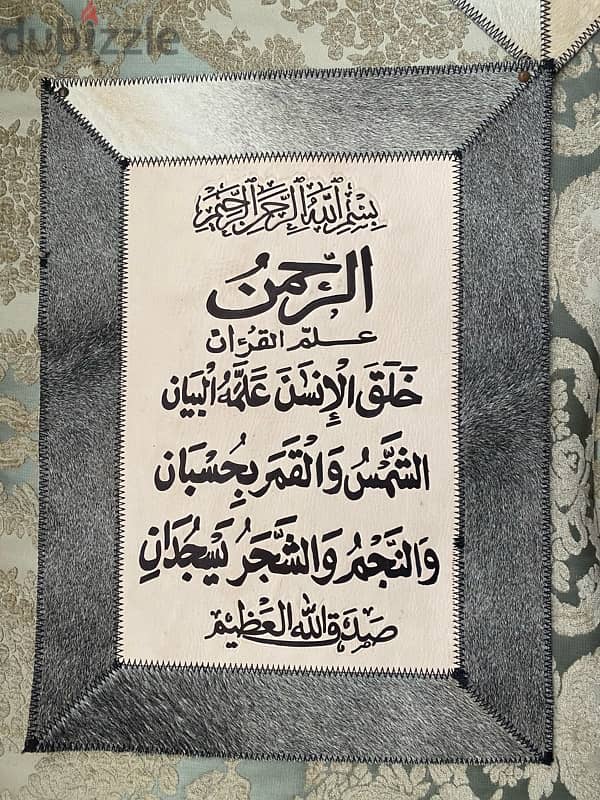 dubizzle
بِسْمِ اللهِ الرَّحْمٰنِ الرَّحِيمِ
الرَّحْمٰنُ
علّم القُرْءان
خَلَقَ الْإِنسَٰنَ عَلَّمَهُ الْبَيَان
الشَّمْسُ وَالْقَمَر بِحُسْبَان
وَالنَّجْمُ وَالشَّجَرُ يَسْجُدَانِ
صَدَقَ اللهُ الْعَظِيمُ